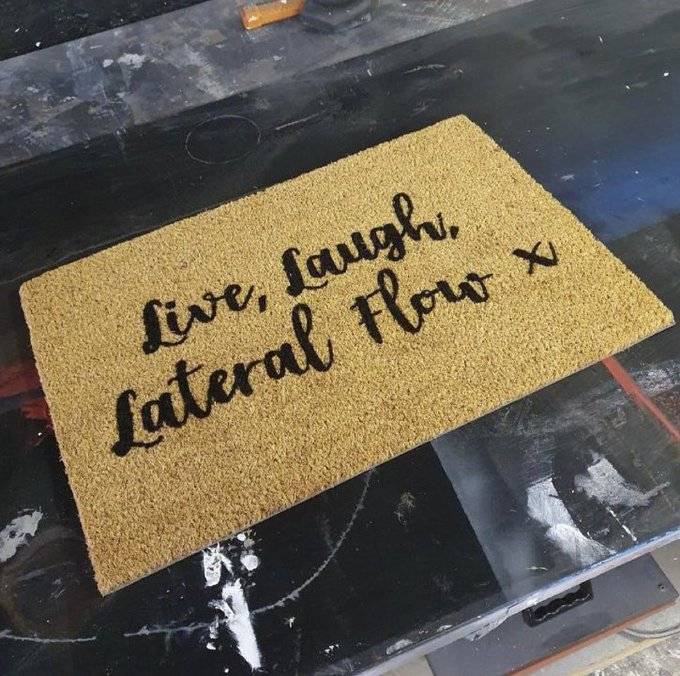 Live, Laugh,
Lateral Flow x